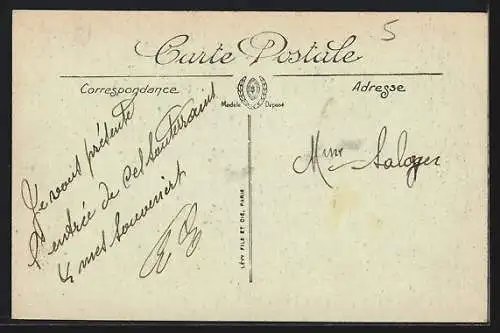 5
Carte Postale
Correspondance
Adresse
Modèle Déposé
Je vous présente
l'entrée de cet Souterrains
& mes souvenirs
Mme Saloger
LÉVY FILS ET CIE, PARIS